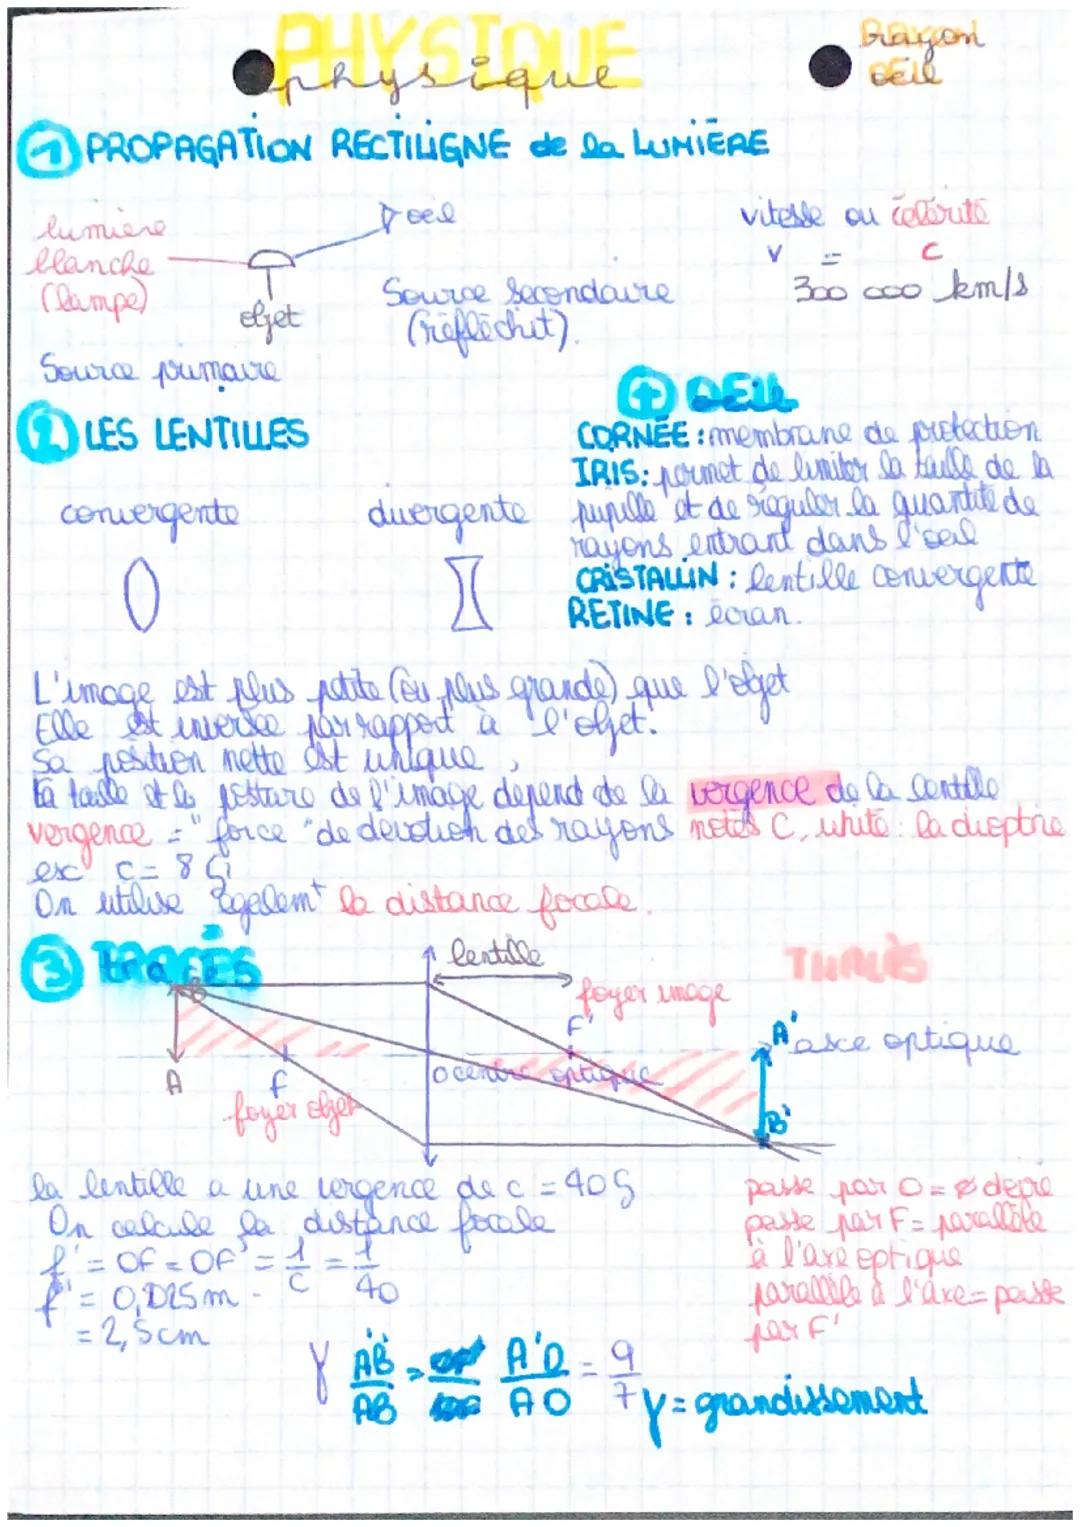 PHYSIQUE
physique
Rayon
oeil
1 PROPAGATION RECTILIGNE de la LUMIÈRE
lumière
blanche
(lampe)
objet
oeil
Source primaire
Source secondaire
(réfléchit).
vitesse ou célérité
v = c
300 000 km/s
2 LES LENTILLES
convergente
divergente
+ OEIL
CORNÉE : membrane de protection
IRIS : permet de limiter la taille de la
pupille et de réguler la quantité de
rayons entrant dans l'oeil
CRISTALLIN : lentille convergente
RETINE : écran.
L'image est plus petite (ou plus grande) que l'objet
Elle est inversée par rapport à l'objet.
Sa position nette est unique,
La taille et la posture de l'image dépend de la vergence de la lentille
vergence = "force" de déviation des rayons notés C, unité : la dioptrie
ex C = 8 δ
On utilise égalemt la distance focale.
3 tracés
lentille
THALÈS
B
foyer image
F'
A'
axe optique
A
F
O centre optique
foyer objet
B'
la lentille a une vergence de c = 40 δ
On calcule la distance focale
f' = OF = OF' = 1/C = 1/40
f' = 0,025 m
= 2,5 cm
passe par O = ø dévié
passe par F = parallèle
à l'axe optique
parallèle à l'axe = passe
par F'
γ A'B'/AB = A'O/AO = 9/7
γ = grandissement